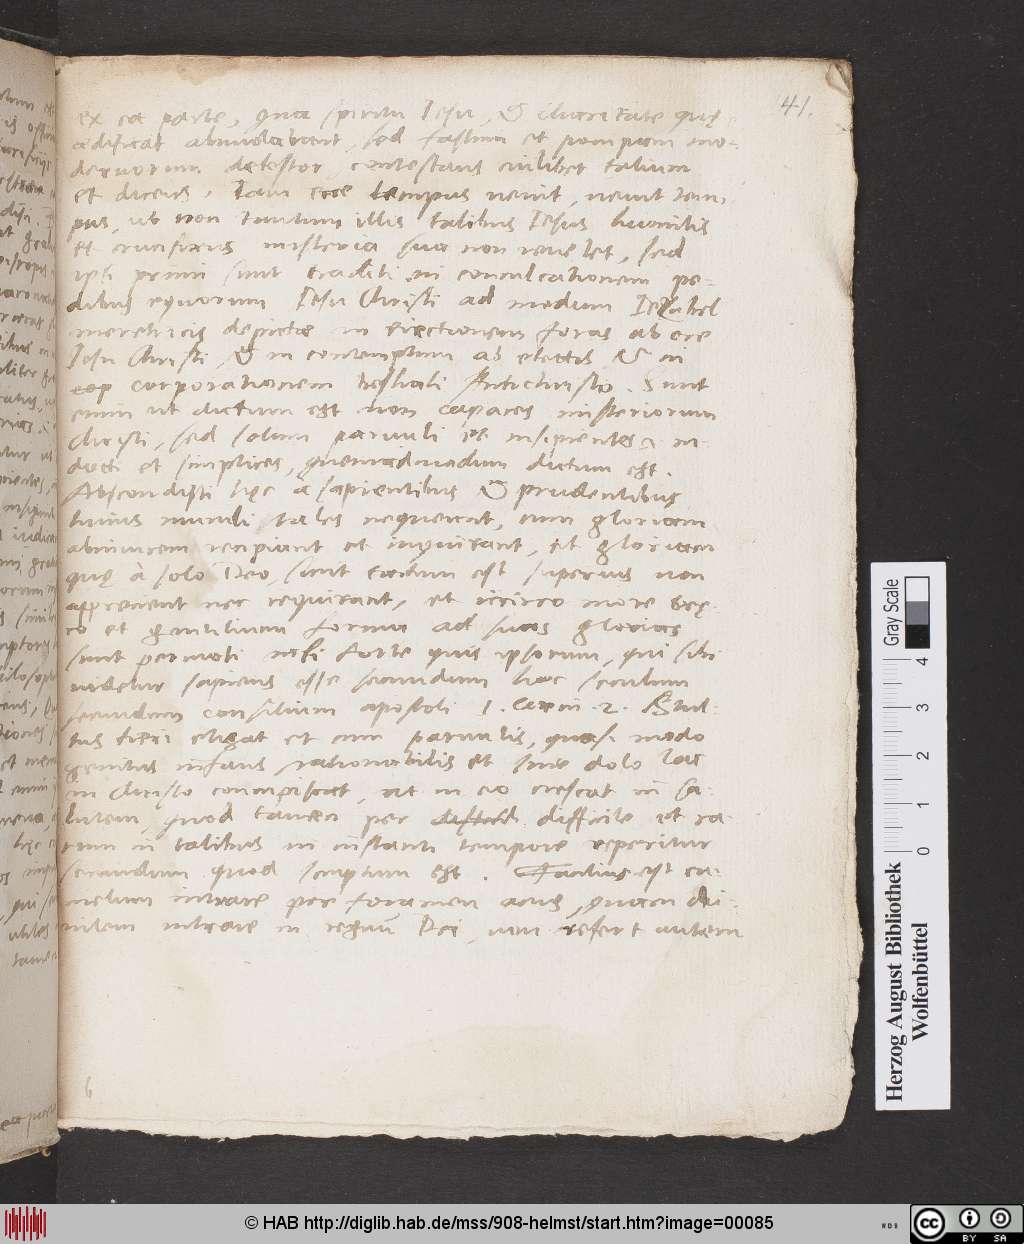 41.
ex ea parte, qua spiritu Iesu, & charitate quę
ædificat abundabant, sed fastum et pompam mo-
dernorum detestor, contestans cuilibet talium
et dicens, Iam ecce tempus uenit, neuit tem-
pus, ub non tantum illis talibus Iesus humilis
et crucifixus misteria sua non reuelet, sed
ipsi primi sunt traditi in conculcationem pe-
dibus equorum Iesu Christi ad modum Iezabel
meretricis depictæ in eiectionem foras ab ore
Iesu Christi, & in contemptum ab electis & in
corporationem bestiali Antichristo. Sunt
enim ut dictum est non capaces misteriorum
Christi, sed solum paruuli et insipientes, in-
docti et simplices, quemadmodum dictum est.
Abscondisti hęc à sapientibus & prudentibus
huius mundi tales nequeunt, cum gloriam
abinuicem recipiant et inquirant, et gloriam
quę à solo Deo, sunt tactum est superius non
apprecient nec requirant, et iccirco more
et gentilium forma ad suas glorias
sunt permoti nisi forte quis ipsorum, qui sibi
uidetur sapiens esse secundum hoc seculum
secundum consilium apostoli 1. Corin. 2. Stul-
tus fieri eligat et cum paruulis, quasi modo
genitus infans rationabilis et sine dolo lac
in Christo concupiscat, ut in eo crescat in sa-
lutem, quod tamen per difficile et ra-
rum in talibus in instanti tempore reperitur
secundum quod scriptum est. Facilius est ca-
melum intrare per foramen acus, quam diui-
tem intrare in regnum Dei, non refert autem
6
Herzog August Bibliothek
Wolfenbüttel
0 1 2 3 4
Gray Scale
© HAB http://diglib.hab.de/mss/908-helmst/start.htm?image=00085
WDB
cc BY SA